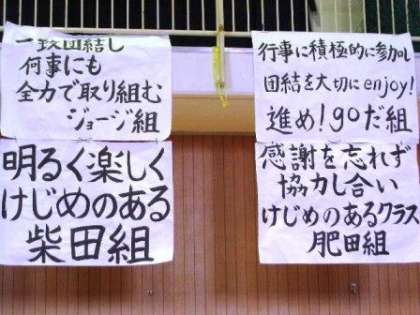 一致団結し
何事にも
全力で取り組む
ジョージ組
明るく楽しく
けじめのある
柴田組
行事に積極的に参加し
団結を大切にenjoy!
進め!goだ組
感謝を忘れず
協力し合い
けじめのあるクラス
肥田組